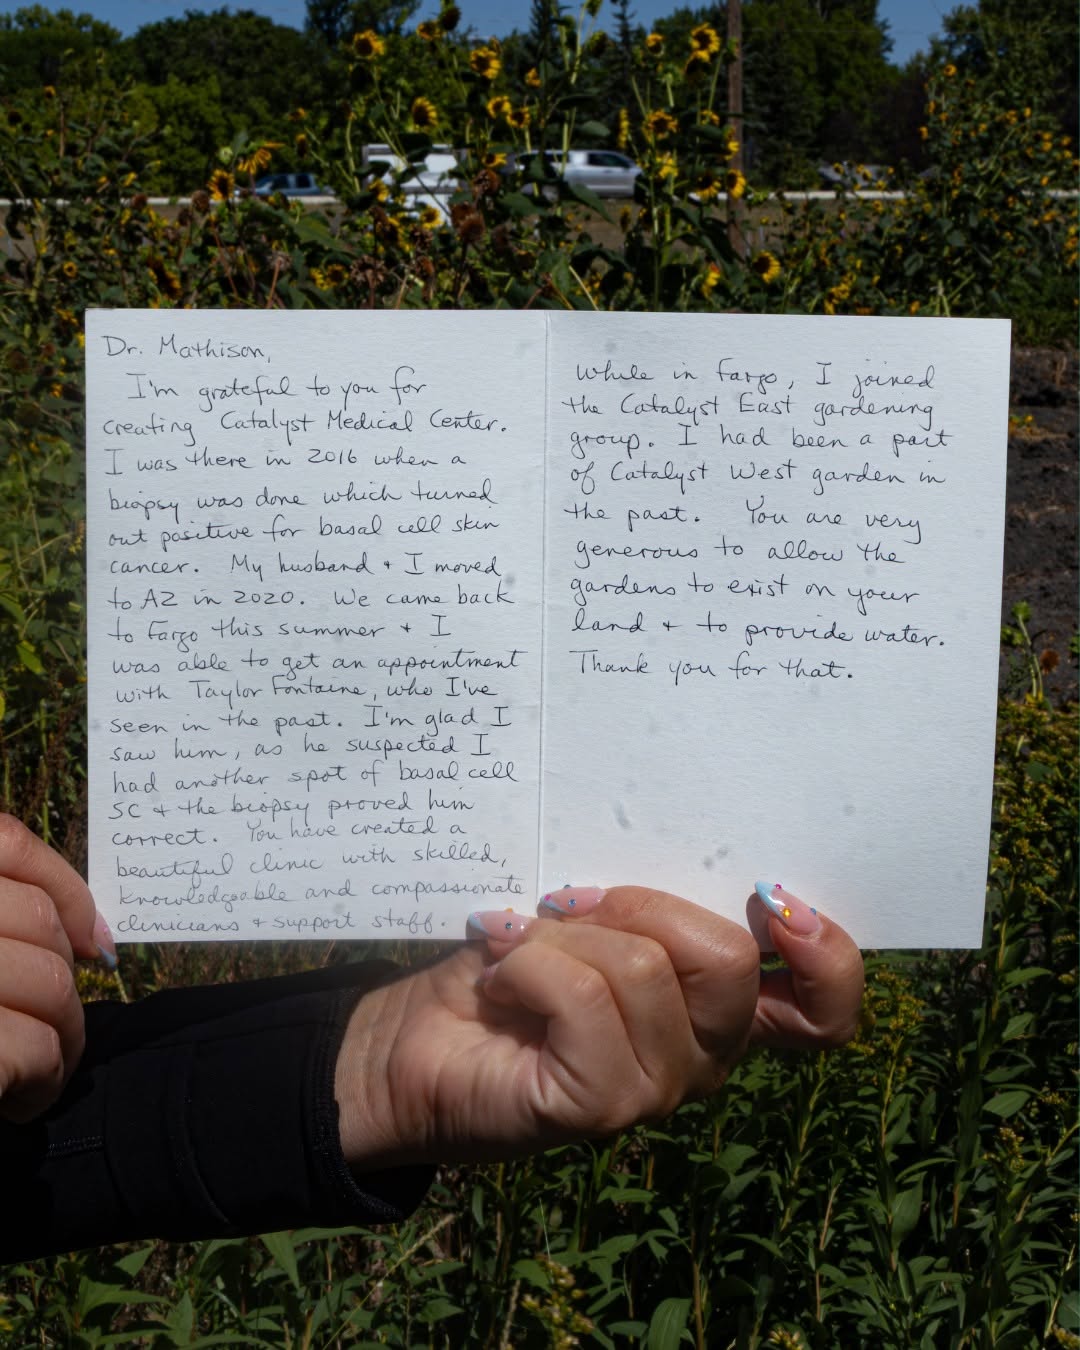 Dr. Mathison,
I'm grateful to you for
creating Catalyst Medical Center.
I was there in 2016 when a
biopsy was done which turned
out positive for basal cell skin
cancer. My husband + I moved
to AZ in 2020. We came back
to Fargo this summer + I
was able to get an appointment
with Taylor Fontaine, who I've
seen in the past. I'm glad I
saw him, as he suspected I
had another spot of basal cell
SC + the biopsy proved him
correct. You have created a
beautiful clinic with skilled,
knowledgeable and compassionate
clinicians + support staff.
While in Fargo, I joined
the Catalyst East gardening
group. I had been a part
of Catalyst West garden in
the past. You are very
generous to allow the
gardens to exist on your
land + to provide water.
Thank you for that.